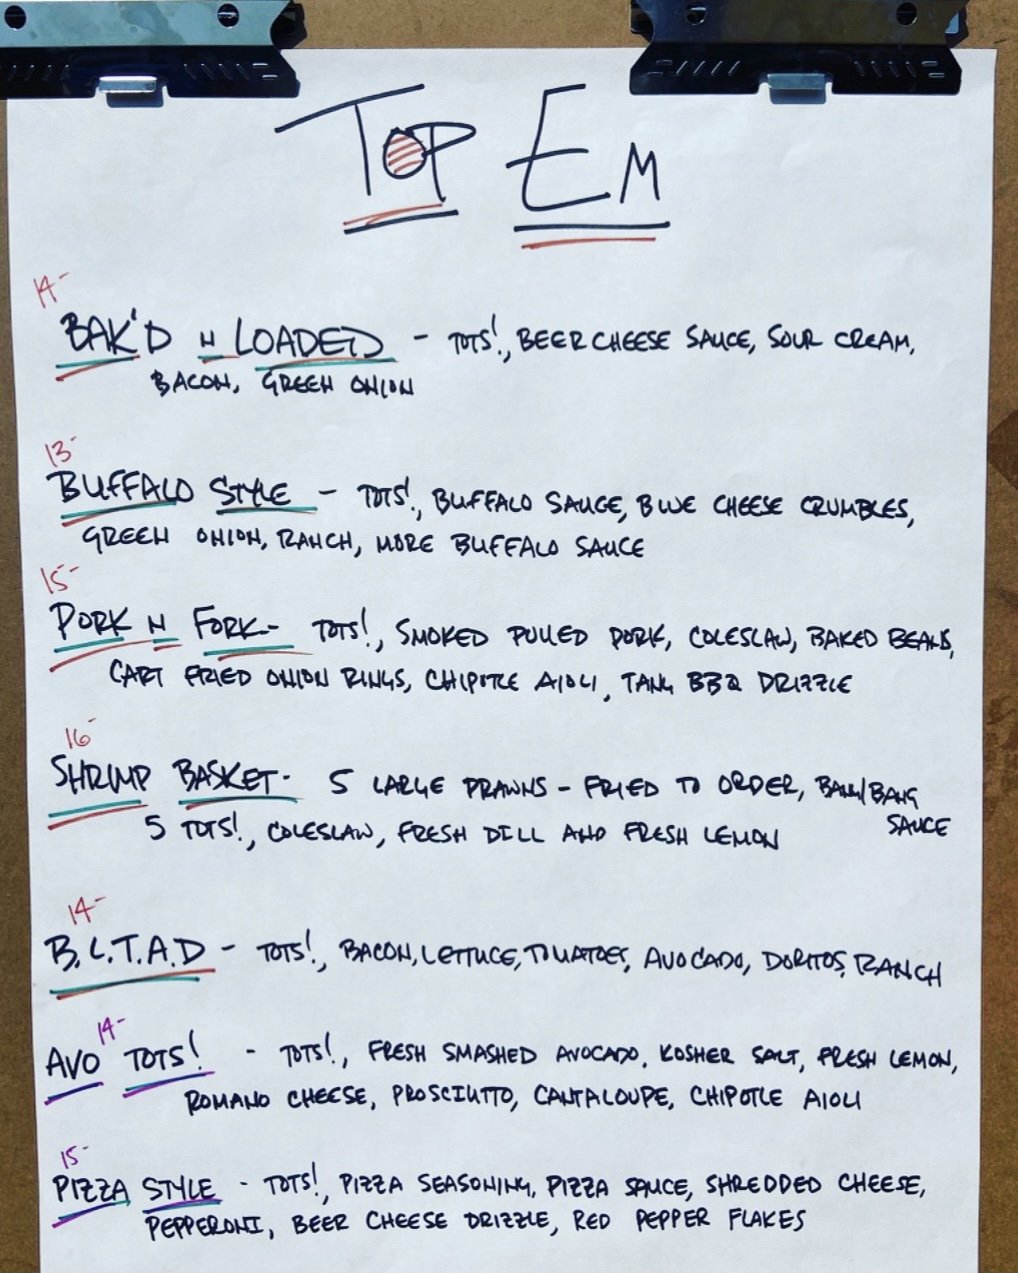 TOP EM
14-
BAK'D N LOADED - TOTS!, BEER CHEESE SAUCE, SOUR CREAM,
BACON, GREEN ONION
13-
BUFFALO STYLE - TOTS!, BUFFALO SAUCE, BLUE CHEESE CRUMBLES,
GREEN ONION, RANCH, MORE BUFFALO SAUCE
15-
PORK N FORK - TOTS!, SMOKED PULLED PORK, COLESLAW, BAKED BEANS,
CART FRIED ONION RINGS, CHIPOTLE AIOLI, TANG BBQ DRIZZLE
16-
SHRIMP BASKET - 5 LARGE PRAWNS - FRIED TO ORDER, BANG/BANG
SAUCE
5 TOTS!, COLESLAW, FRESH DILL AND FRESH LEMON
14-
B.L.T.A.D - TOTS!, BACON, LETTUCE, TOMATOES, AVOCADO, DORITOS, RANCH
14-
AVO TOTS! - TOTS!, FRESH SMASHED AVOCADO, KOSHER SALT, FRESH LEMON,
ROMANO CHEESE, PROSCIUTTO, CANTALOUPE, CHIPOTLE AIOLI
15-
PIZZA STYLE - TOTS!, PIZZA SEASONING, PIZZA SAUCE, SHREDDED CHEESE,
PEPPERONI, BEER CHEESE DRIZZLE, RED PEPPER FLAKES